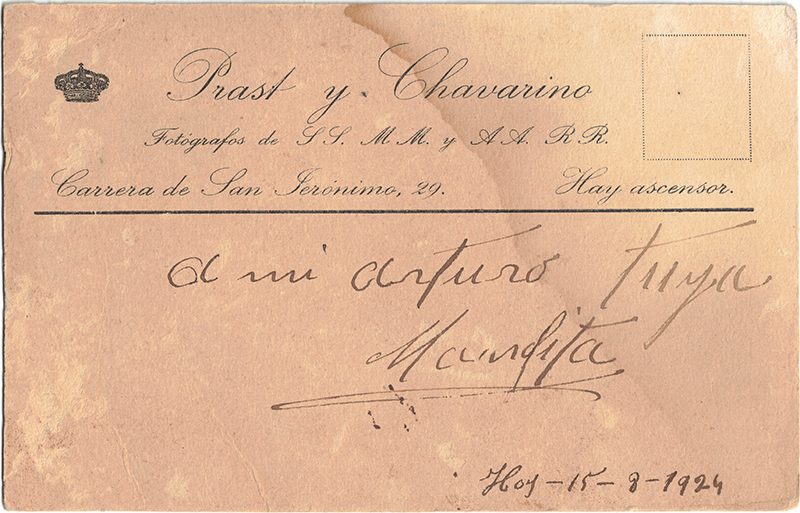 Prast y Chavarino
Fotógrafos de S S. M M. y A A. R R.
Carrera de San Jerónimo, 29. Hay ascensor.
a mi arturo tuya
Manolita
Hoy-15-8-1924